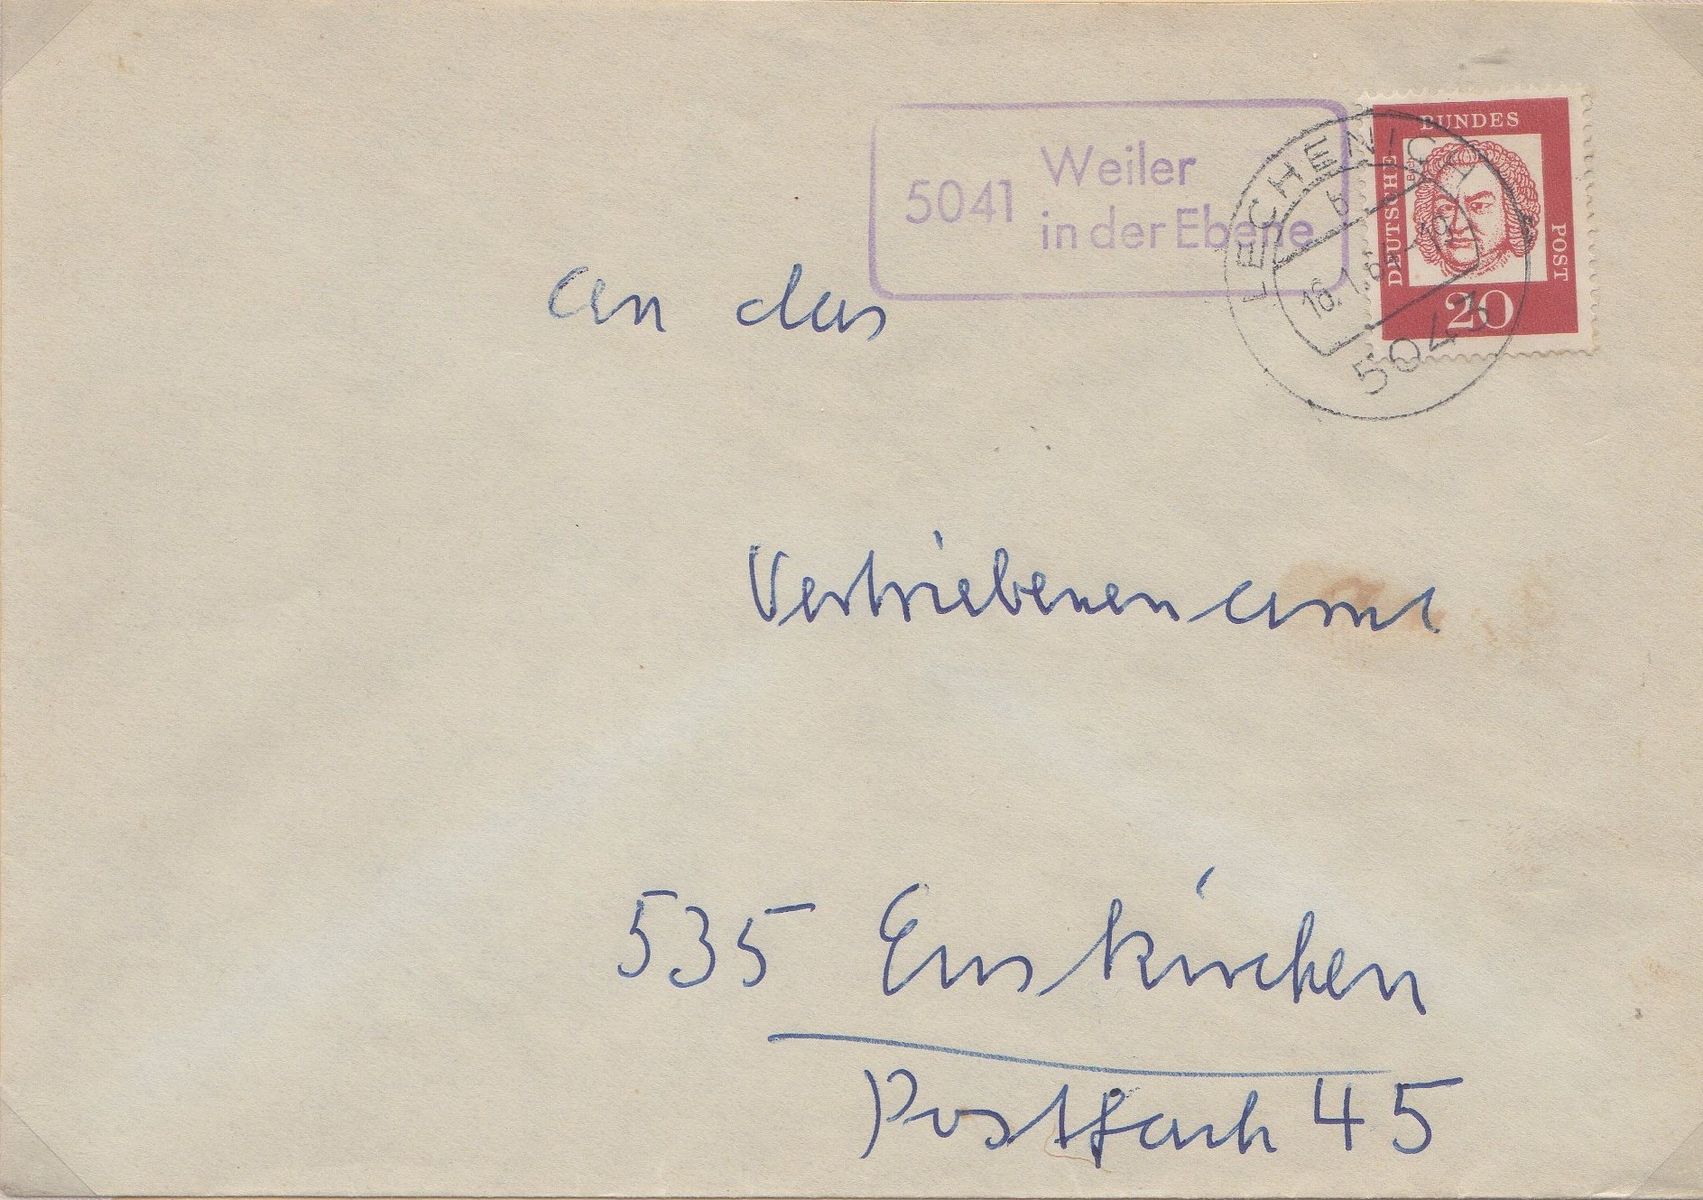 5041 Weiler
in der Ebene
LECHENICH
b
16.1.64-19
5043
DEUTSCHE
BUNDES
POST
20
an das
Vertriebenenamt
535 Euskirchen
Postfach 45